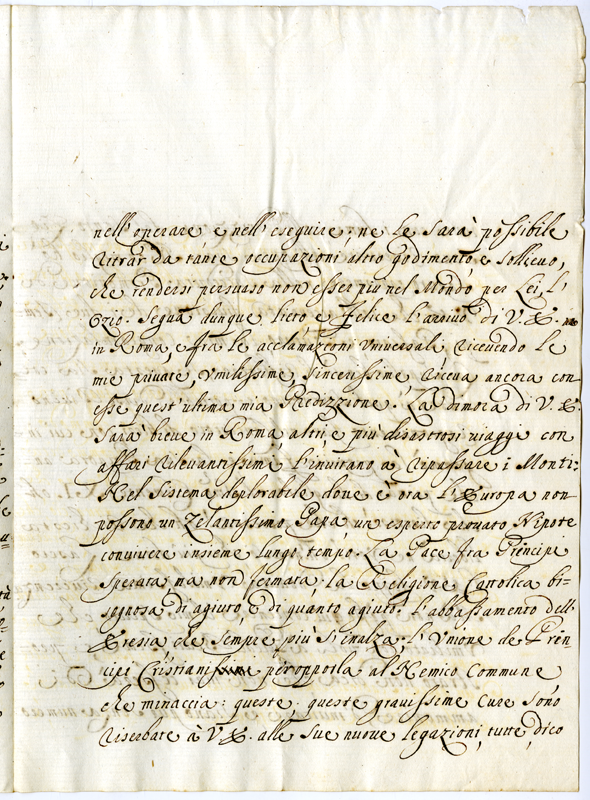 nell'operare e nell'eseguire, ne le sarà possibile
ritrar da tante occupazioni altro godimento, e sollievo,
che rendersi persuaso non esser più nel Mondo per Lei, l'
Ozio. Segua dunque lieto e felice l'arrivo di V. E.
in Roma, e frà le acclamazioni universali ricevendo le
mie private, umilissime, sincerissime riceva ancora con
esse quest'ultima mia Predizzione. La dimora di V. E.
sarà breve in Roma, altri e più disastrosi viaggi con
affari rilevantissimi l'invitano à ripassare i Monti.
Nel sistema deplorabile dove è ora l'Europa non
possono un Zelantissimo Papa un esperto provato Nipote
convivere insieme lungo tempo. La Pace fra Principi
sperata ma non fermata, la Religione Cattolica bi=
sognosa di agiuto, e di quanto agiuto. L'abbassamento dell'
Eresia che sempre più s'inalza, l'Unione de Prin
cipi Cristiani per opporla al Nemico Commune
che minaccia: queste, queste gravissime cure sono
riserbate à V. E. alle sue nuove legazioni, tutte, dico